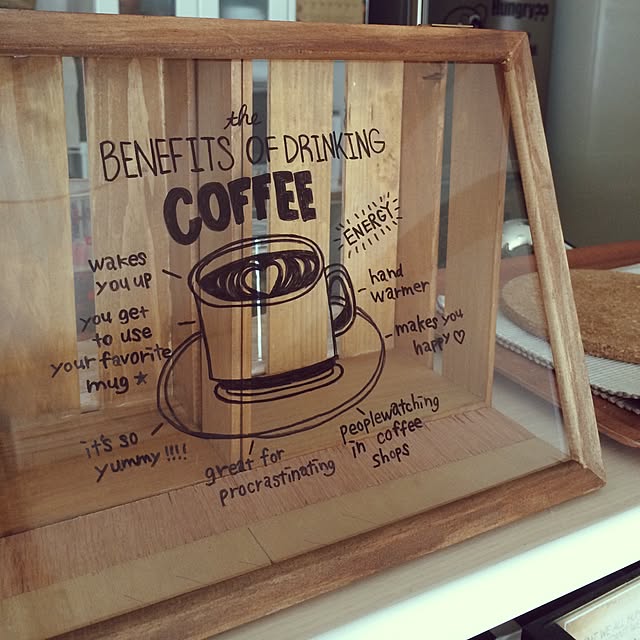 Hungry??
the
BENEFITS OF DRINKING
COFFEE
ENERGY
wakes
you up
hand
warmer
you get
to use
your favorite
mug ★
makes you
happy ♡
it's so
yummy !!!!
great for
procrastinating
peoplewatching
in coffee
shops